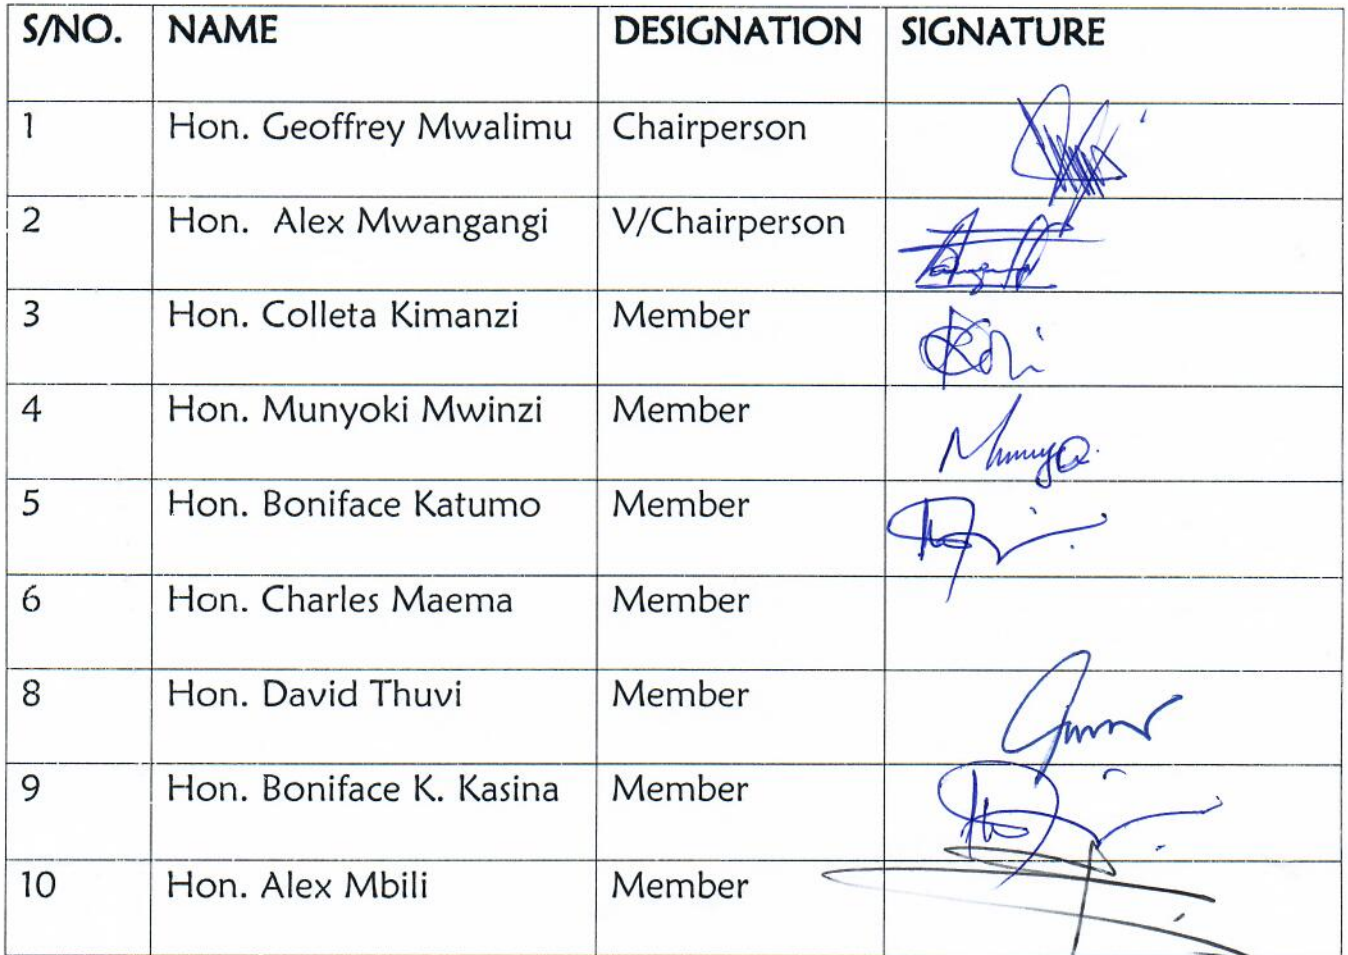 S/NO. NAME DESIGNATION SIGNATURE
1 Hon. Geoffrey Mwalimu Chairperson
2 Hon. Alex Mwangangi V/Chairperson
3 Hon. Colleta Kimanzi Member
4 Hon. Munyoki Mwinzi Member
5 Hon. Boniface Katumo Member
6 Hon. Charles Maema Member
8 Hon. David Thuvi Member
9 Hon. Boniface K. Kasina Member
10 Hon. Alex Mbili Member